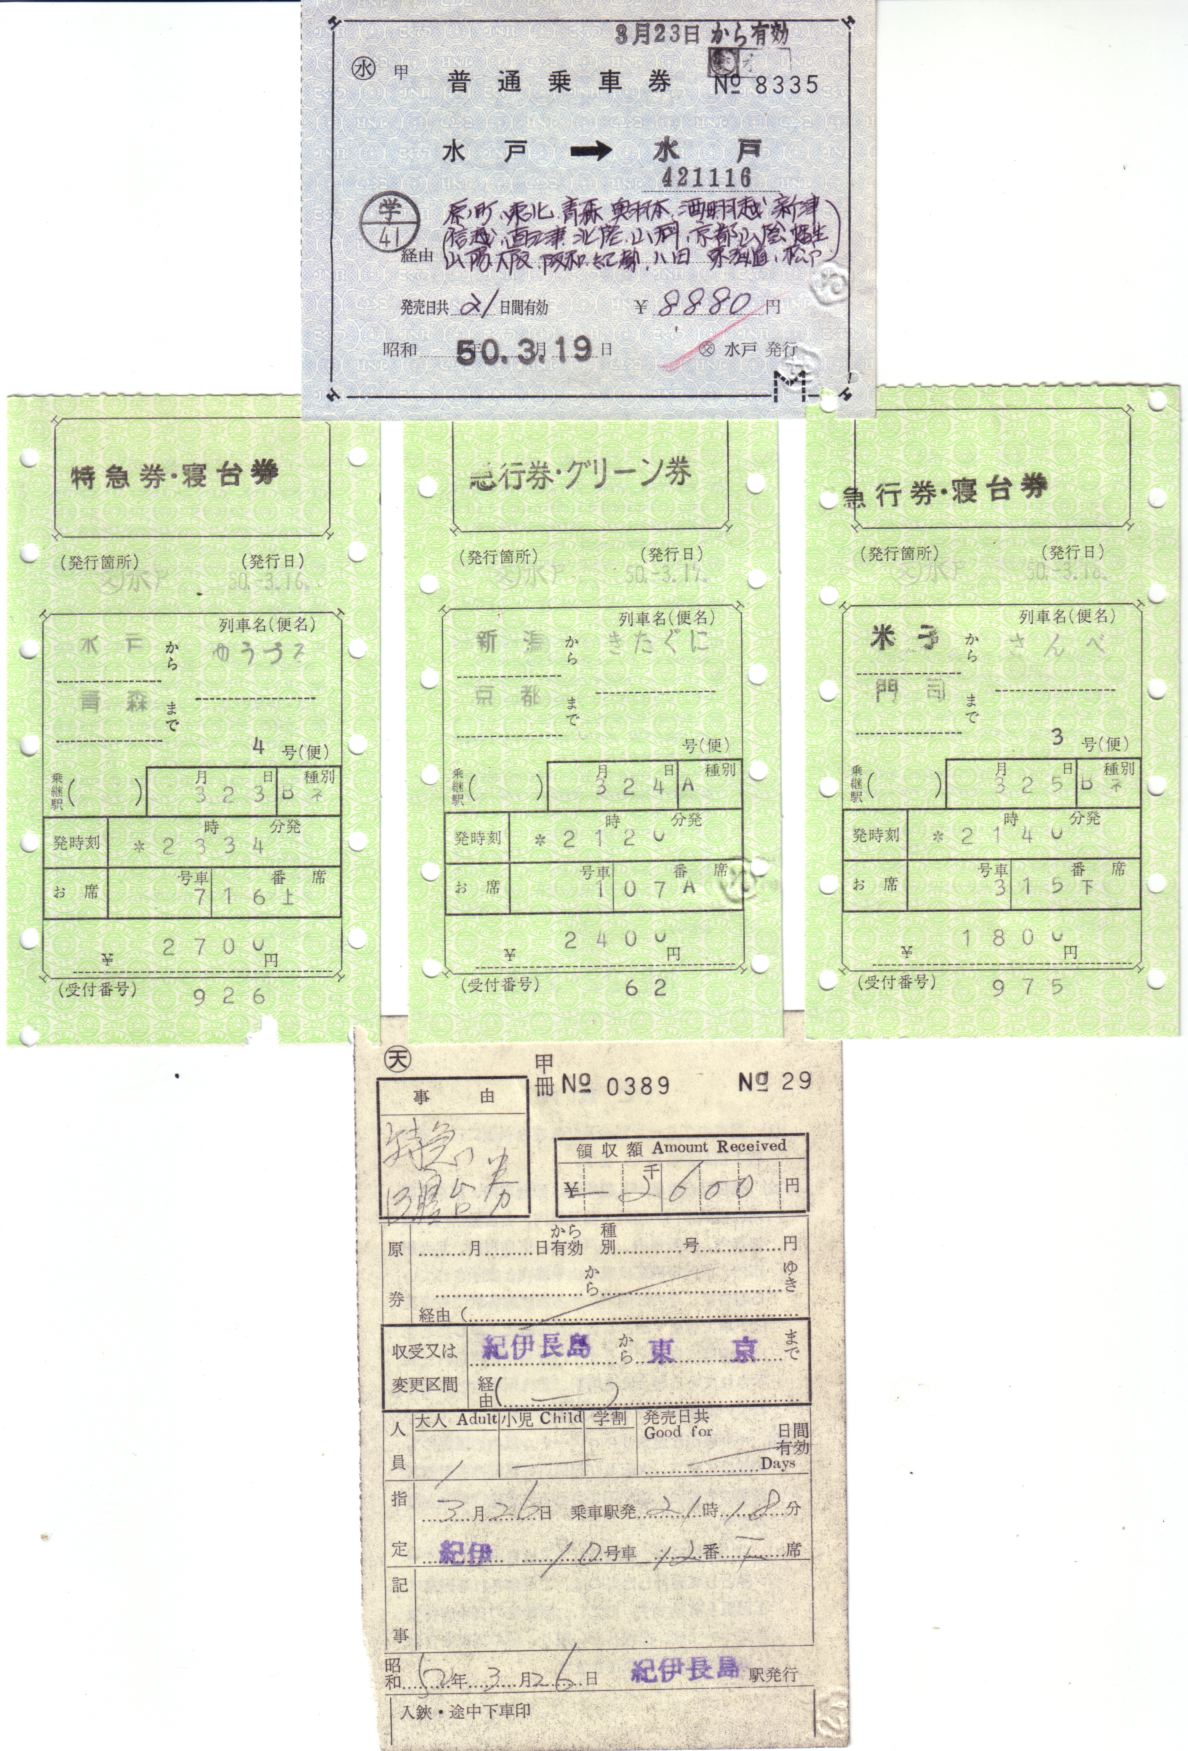 3月23日 から有効
㊌ 甲
普通乗車券
№ 8335
水戸 ➡ 水戸
421116
学 41
経由
原ノ町、東北、青森、奥羽本、
信越、直江津、北陸、山科、京都、山陰、
山陽、大阪、阪和、紀勢、八田、東海道、
発売日共 21 日間有効
¥ 8880 円
昭和 50.3.19 日
水戸 発行
M
特急券・寝台券
(発行箇所) (発行日)
水戸 50.-3.16.
列車名(便名)
水戸 から ゆうづる
青森 まで
4 号(便)
乗継駅 ( ) 月 日 種別
3 23 Bネ
発時刻 時 分発
*2334
お席 号車 番 席
7 16 上
¥ 2700 円
(受付番号) 926
急行券・グリーン券
(発行箇所) (発行日)
水戸 50.-3.17.
列車名(便名)
新潟 から きたぐに
京都 まで
号(便)
乗継駅 ( ) 月 日 種別
3 24 A
発時刻 時 分発
*2120
お席 号車 番 席
1 07 A
¥ 2400 円
(受付番号) 62
急行券・寝台券
(発行箇所) (発行日)
水戸 50.-3.18.
列車名(便名)
米子 から さんべ
門司 まで
3 号(便)
乗継駅 ( ) 月 日 種別
3 25 Bネ
発時刻 時 分発
*2140
お席 号車 番 席
3 15 下
¥ 1800 円
(受付番号) 975
天
甲冊 № 0389 № 29
事由
特急
B寝台券
領収額 Amount Received
¥ 千 2600 円
原券 月 日から有効 種別 号 円
から ゆき
経由(
収受又は変更区間
紀伊長島 から 東京 まで
経由( )
人員 大人 Adult 小児 Child 学割 発売日共 Good for 日間有効 Days
1
指定
3月26日 乗車駅発 21時18分
紀伊 10号車 12番 下 席
記事
昭和52年3月26日 紀伊長島 駅発行
入鋏・途中下車印